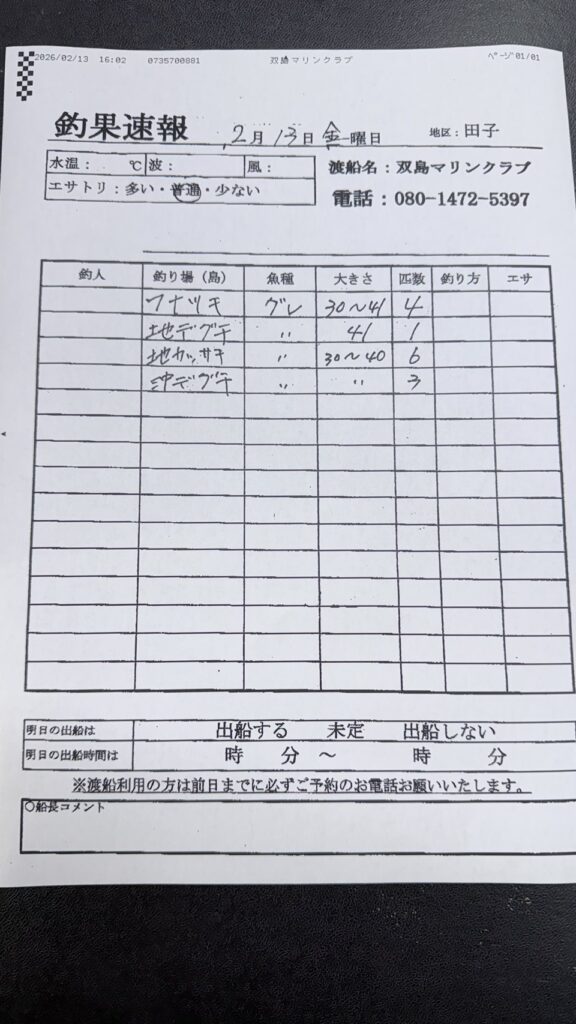 2026/02/13 16:02 0735700881 双島マリンクラブ ページ01/01
釣果速報 2月13日金曜日 地区：田子
水温： ℃ 波： 風：
渡船名：双島マリンクラブ
エサトリ：多い・普通・少ない
電話：080-1472-5397
釣人 釣り場（島） 魚種 大きさ 匹数 釣り方 エサ
フナツキ グレ 30〜41 4
地デグチ 〃 41 1
地カッサキ 〃 30〜40 6
沖デグチ 〃 〃 3
明日の出船は 出船する 未定 出船しない
明日の出船時間は 時 分 〜 時 分
※渡船利用の方は前日までに必ずご予約のお電話お願いいたします。
○船長コメント